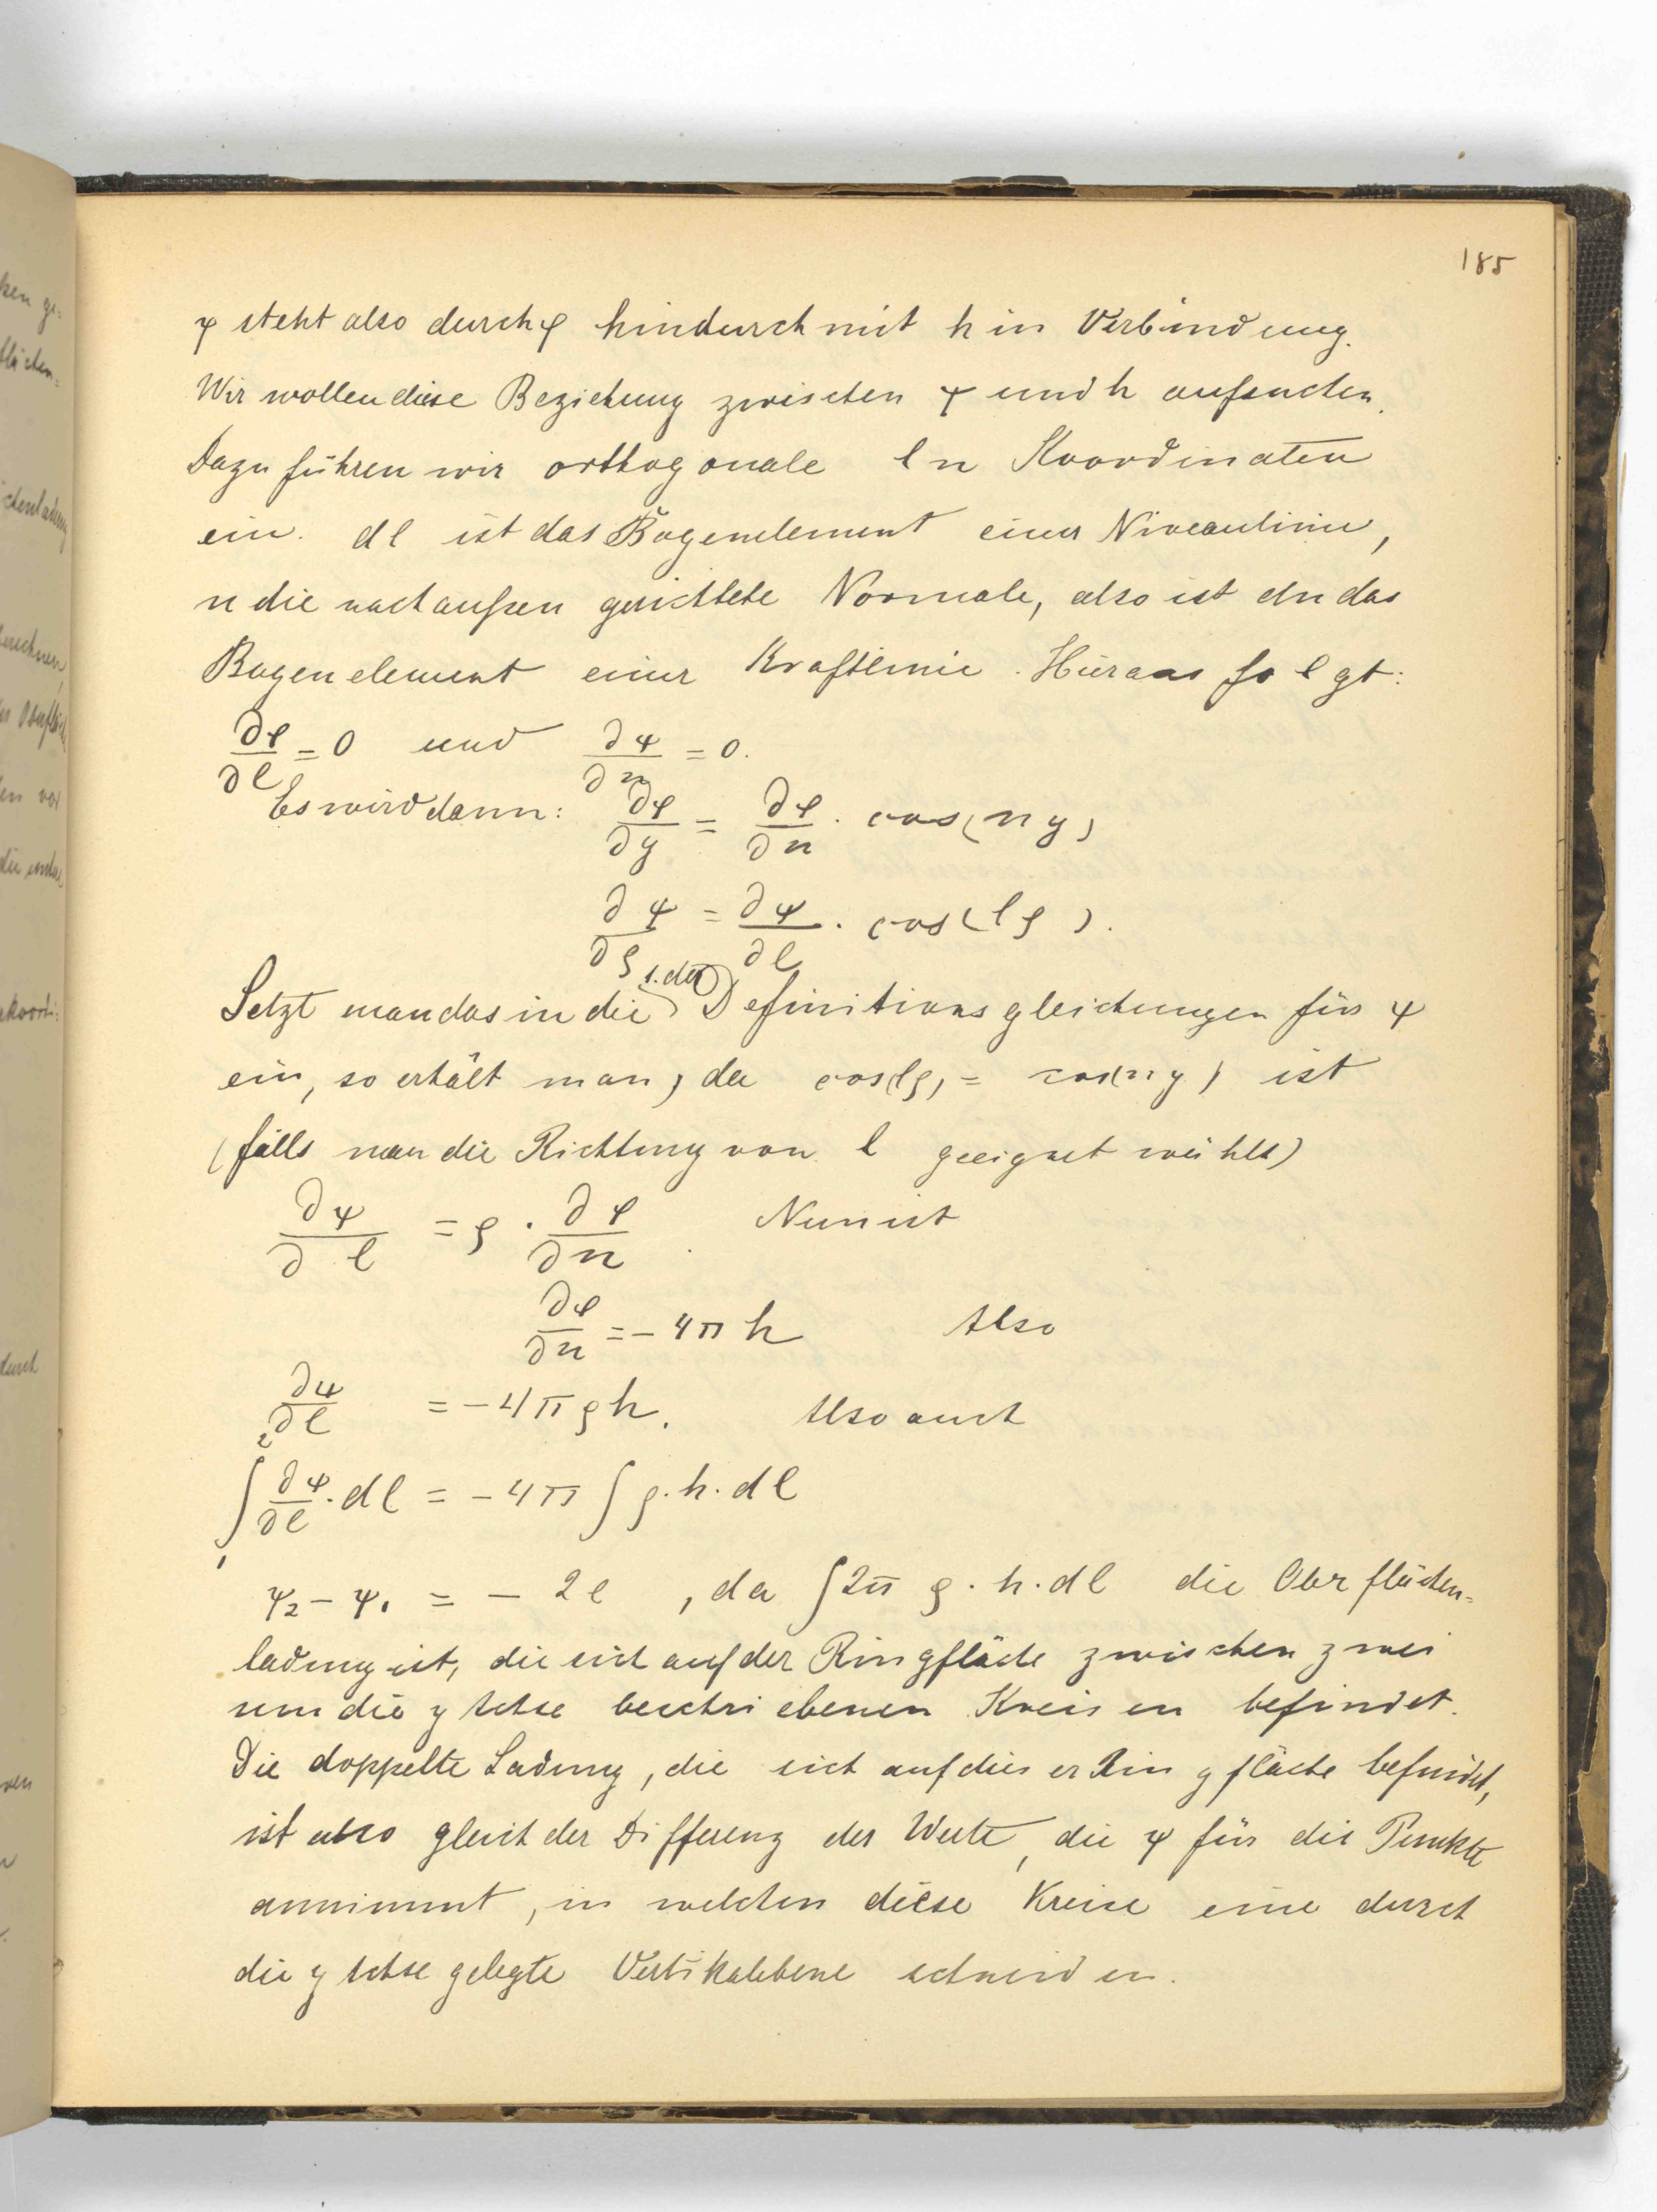 185
ψ steht also durch φ hindurch mit h in Verbindung.
Wir wollen diese Beziehung zwischen ψ und h aufsuchen.
Dazu führen wir orthogonale l n Koordinaten
ein. dl ist das Bogenelement einer Niveaulinie,
n die nach außen gerichtete Normale, also ist dn das
Bogenelement einer Kraftlinie. Hieraus folgt:
∂φ/∂l = 0 und ∂ψ/∂n = 0.
Es wird dann: ∂φ/∂y = ∂φ/∂n · cos(ny)
∂ψ/∂ρ = ∂ψ/∂l · cos(lρ).
Setzt man das in die 1. der Definitionsgleichungen für ψ
ein, so erhält man, da cos(lρ) = cos(ny) ist
(falls man die Richtung von l geeignet wählt)
∂ψ/∂l = ρ · ∂φ/∂n. Nun ist
∂φ/∂n = - 4π h Also
∂ψ/∂l = - 4πρh. Also auch
∫₁² ∂ψ/∂l · dl = - 4π ∫ ρ·h·dl
ψ₂ - ψ₁ = - 2e , da ∫2π ρ·h·dl die Oberflächen=
ladung ist, die sich auf der Ringfläche zwischen zwei
um die y Achse beschriebenen Kreisen befindet.
Die doppelte Ladung, die sich auf dieser Ringfläche befindet,
ist also gleich der Differenz der Werte, die ψ für die Punkte
annimmt, in welchen diese Kreise eine durch
die y Achse gelegte Vertikalebene schneiden.